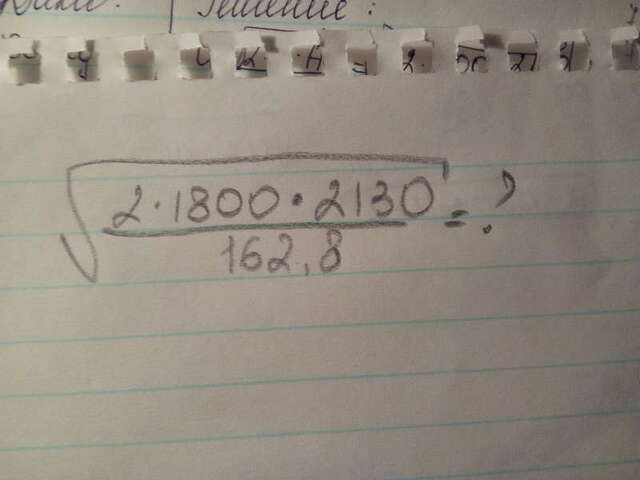 Решение:
√(2·1800·2130 / 162,8) = ?